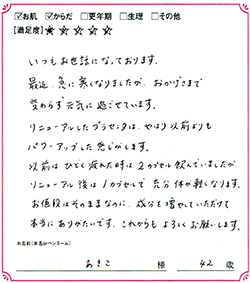 ☑お肌 ☑からだ □更年期 □生理 □その他
[満足度]★☆☆☆☆
いつもお世話になっております。
最近、急に寒くなりましたが、おかげさまで
変わらず元気に過ごせています。
リニューアルしたプラセンタは、やはり以前よりも
パワーアップした感じがします。
以前はひどく疲れた時は2カプセル飲んでいましたが、
リニューアル後は1カプセルで充分体が軽くなります。
お値段はそのままなのに、成分を増やしていただけて
本当にありがたいです。これからもよろしくお願いします。
お名前(本名orペンネーム)
あきこ 様 42 歳